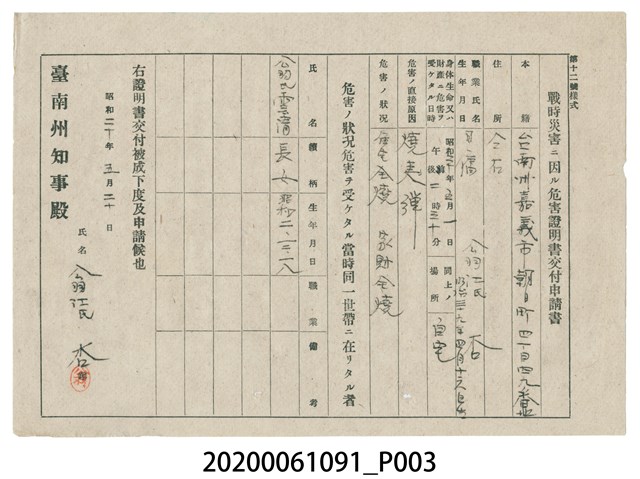 第十二號樣式
戰時災害ニ因ル危害證明書交付申請書
本籍 台南州嘉義市朝日町四丁目四九番地
住所 仝右
職業氏名 翁江氏 杏
生年月日 明治三十六年四月十六日生
身体生命又ハ財產ニ危害ヲ受ケタル日時 昭和二十年 月一日午後二時三十分
同上ノ場所 自宅
危害ノ直接原因 燒夷彈
危害ノ狀況 住宅全燒 家財全燒
危害ノ狀況危害ヲ受ケタル當時同一世帶ニ在リタル者
氏名 續柄 生年月日 職業 備考
翁氏雲清 長女 昭和二、三、一八
右證明書交付被成下度及申請候也
昭和二十年五月二十日
氏名 翁江氏 杏
臺南州知事殿
20200061091_P003